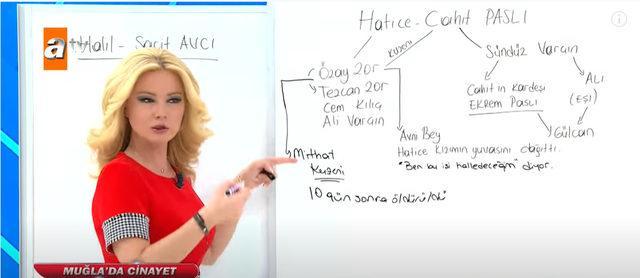 Halil - Sacit AVCI
a
Hatice-Cahit PASLI
Kuzeni
Özay Zor
Tezcan Zor
Cem Kılıç
Ali Vargın
Sündüz Vargın
Cahit'in Kardeşi
EKREM PASLI
ALİ
(EŞİ)
Gülcan
Avni Bey
Hatice kızımın yuvasını dağıttı.
"Ben bu işi halledeceğim" diyor.
Mithat
Kuzeni
10 gün sonra öldürüldü
MUĞLA'DA CİNAYET